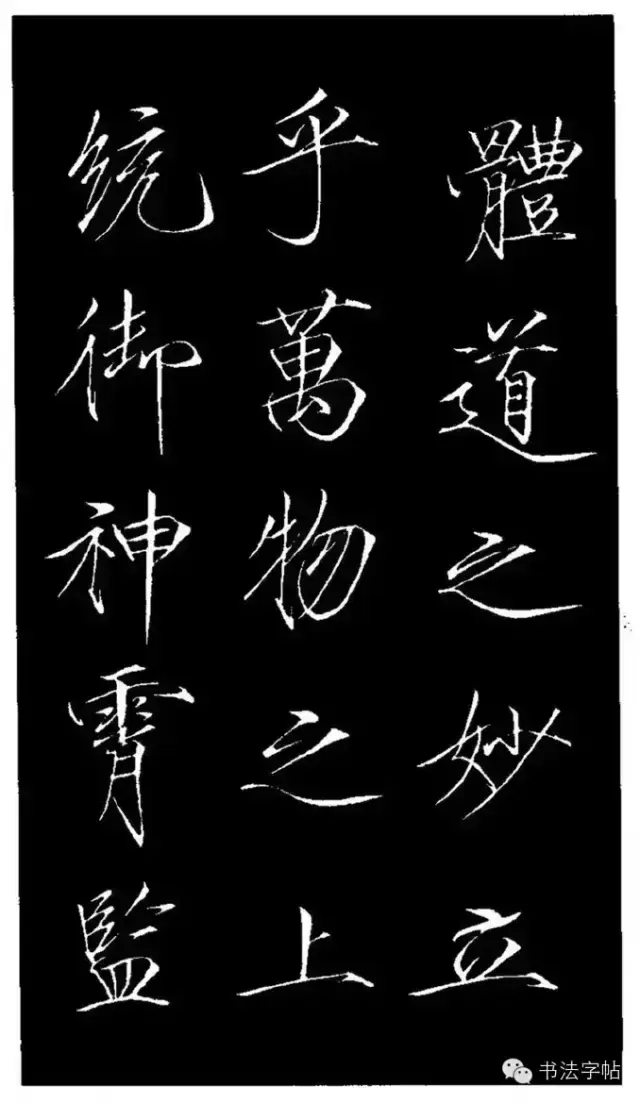 體道之妙立
乎萬物之上
統御神霄監
书法字帖